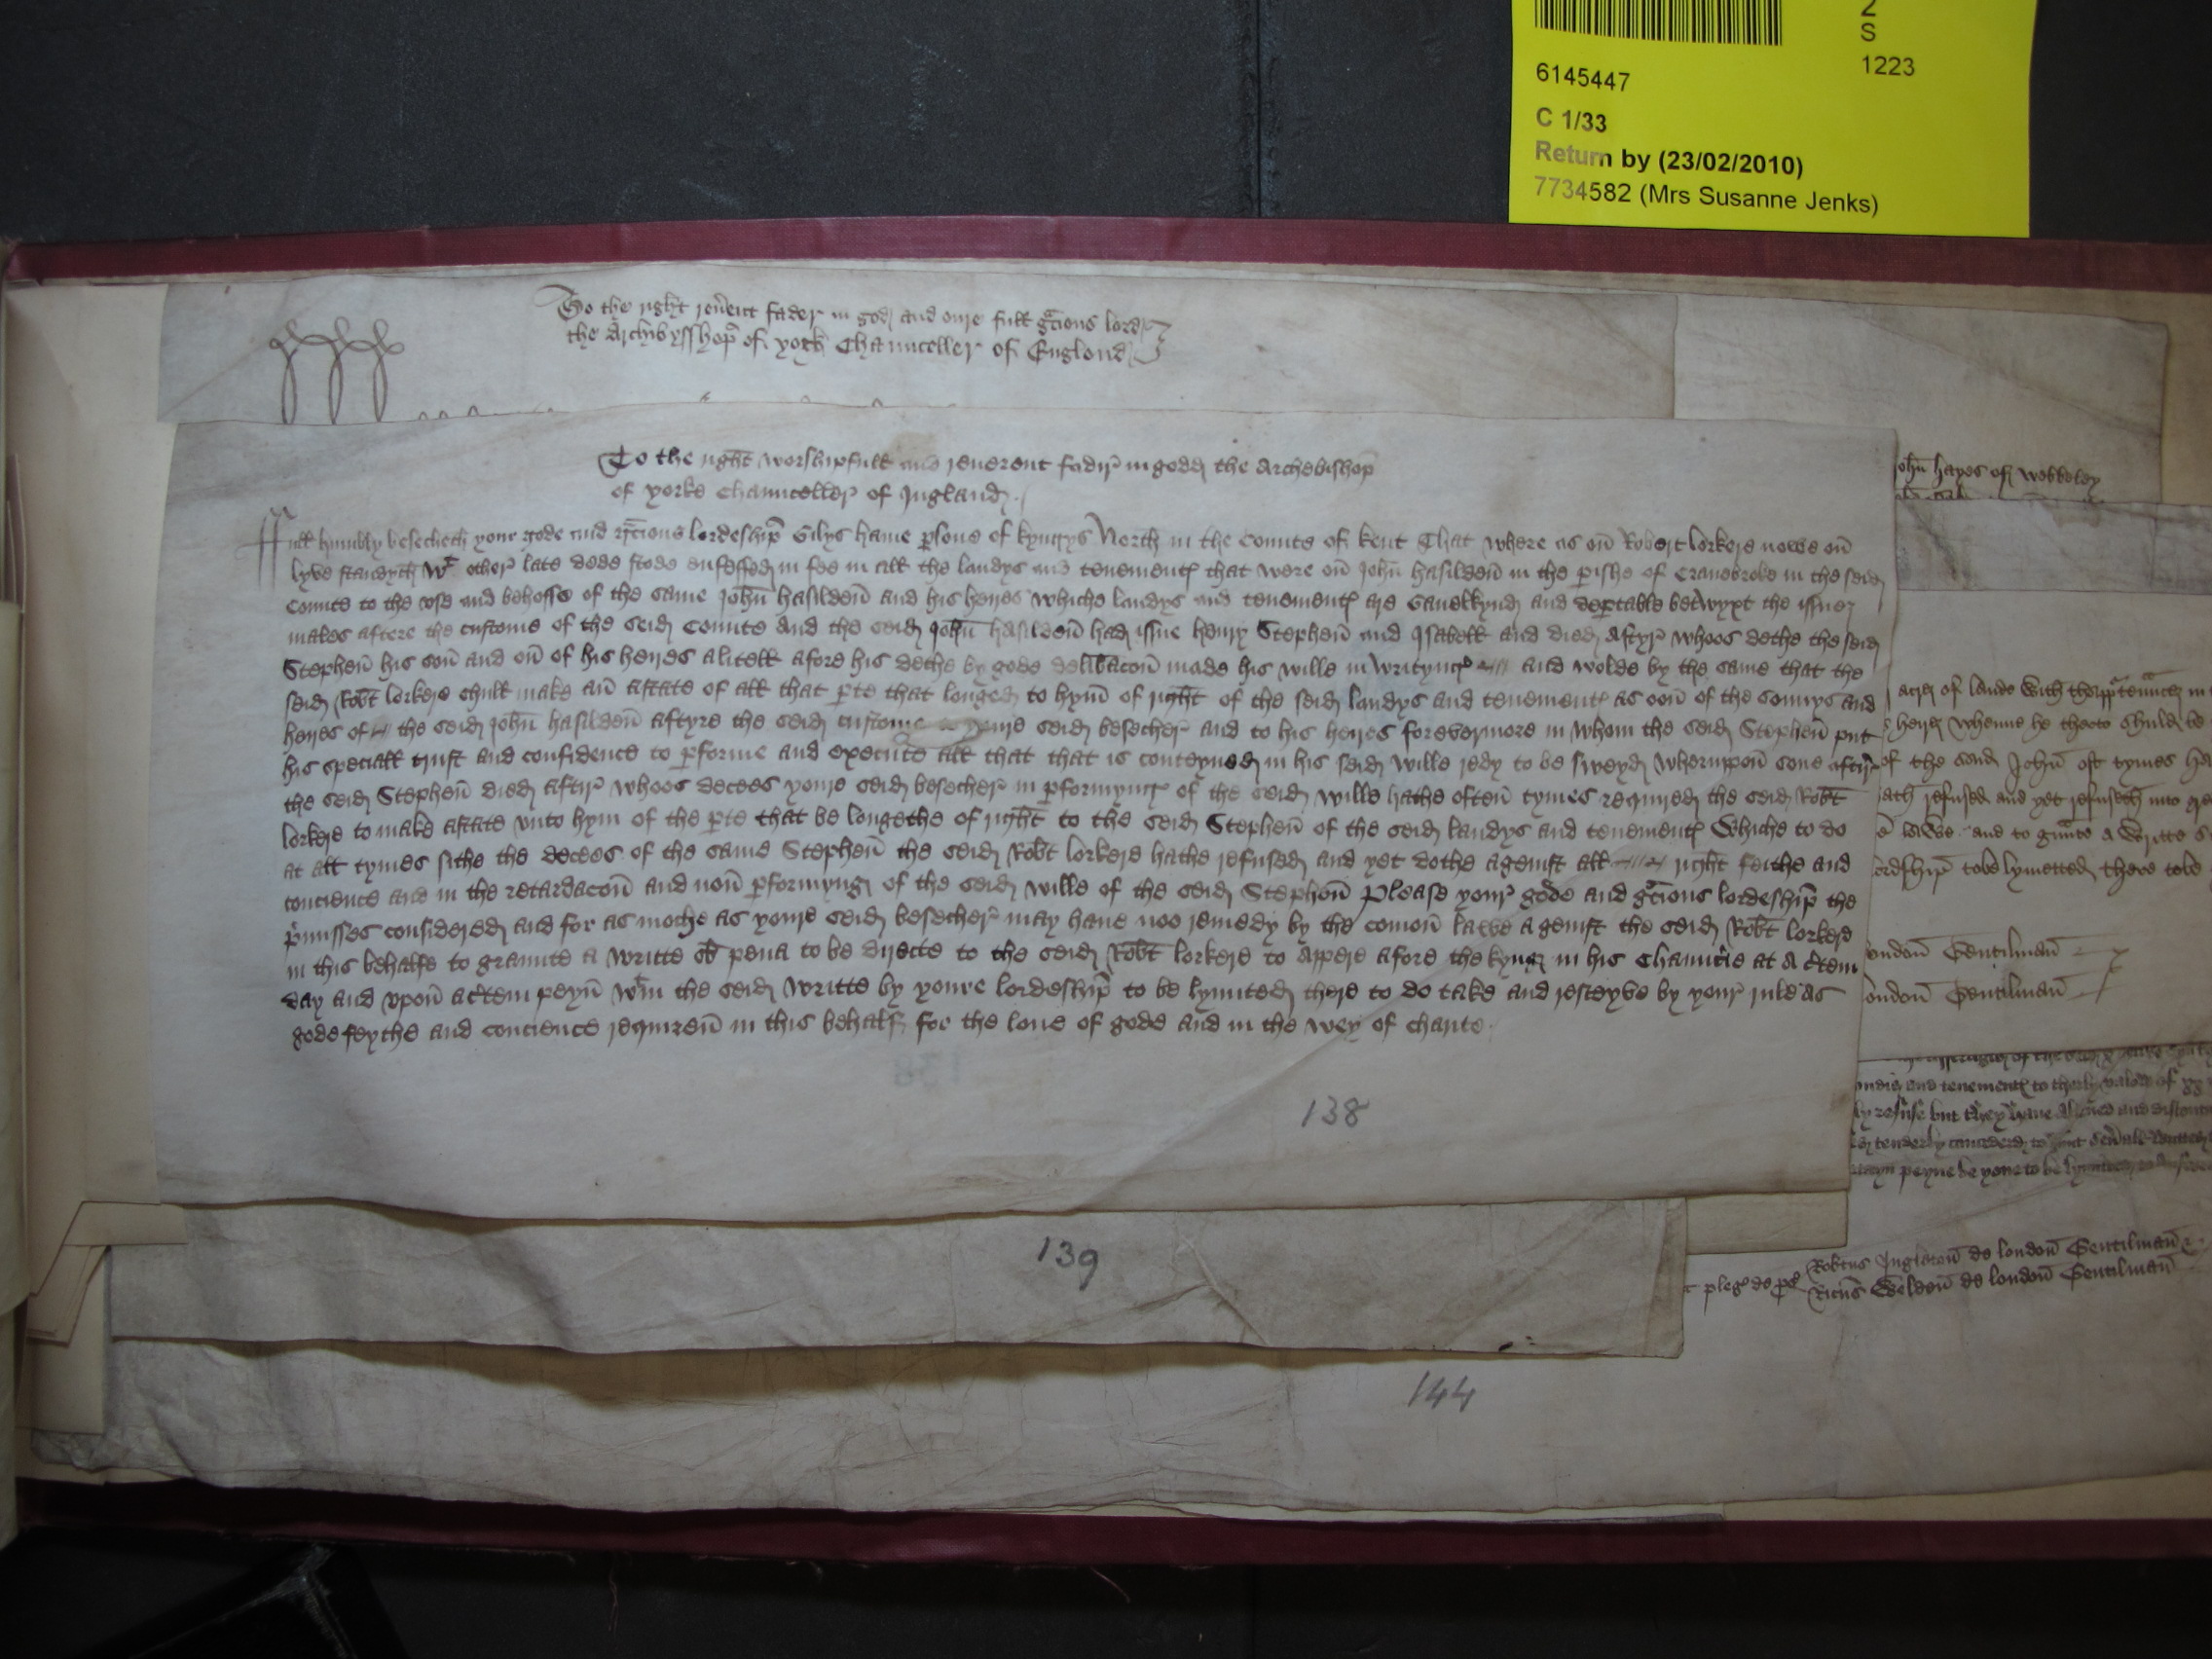 2
S
1223
6145447
C 1/33
Return by (23/02/2010)
7734582 (Mrs Susanne Jenks)
To the right reu'ent fader in god and oure full gracious lord
the Archibysshop of york Chaunceller of Englond
To the right worshipfull and reuerent fadir in godd the Archebishop
of yorke Chaunceller of Ingland
Full humbly besechech your gode and gracious lordeship Gilys hame psone of kyngys North in the Counte of kent That where as on Robert lorkere nowe on
lyve standyth wt other late dede stode enfeffed in fee in all the landys and tenementes that were on John hasilden in the pishe of Cranebroke in the seid
Counte to the use and behoffe of the same John hasilden and his heyres whiche landys and tenementes are Gauelkynd and depertable betwyxt the issuez
males aftere the custome of the seid Counte And the seid John hasilden had issue henry Stephen and Isabell and died Aftyr whoos dethe the seid
Stephen his son and on of his heyres alitell afore his dethe by gode delibacon made his wille in writyng and wolde by the same that the
seid Robt lorkere shull make an astate of all that pte that longed to hym of right of the seid landys and tenementes as oon of the sonnys and
heyres of the seid John hasilden aftyre the seid custome to youre seid besecher and to his heyres forevermore in whom the seid Stephen put
his speciall trust and confidence to pforme and execute all that that is conteyned in his seid wille redy to be sweyd wheruppon sone aftir
the seid Stephen died aftir whoos decees youre seid besecher in pformyng of the seid wille hathe often tymes required the seid Robt
lorkere to make astate unto hym of the pte that be longethe of right to the seid Stephen of the seid landys and tenementes Whiche to do
at all tymes sithe the decees of the same Stephen the seid Robt lorkere hathe refused and yet dothe ageinst all right feithe and
concience and in the retardacon and non pformyng of the seid wille of the seid Stephen Please your gode and gracious lordeship the
pmisses considered and for as moche as youre seid besecher may haue noo remedy by the comon lawe ageinst the seid Robt lorkere
in this behalfe to graunte a writte sb pena to be directe to the seid Robt lorkere to Appere afore the kyng in his Chauncrie at A c'tem
day and upon ac'tem peyn wtin the seid writte by youre lordeship to be lymited there to do take and resceyve by your rule as
gode feythe and concience requiren in this behalf for the loue of gode and in the wey of charite
138
139
144
John hayes of webbeley
acres of lande with thapp'tenauncez in
heyrez whenne he therto shulde be
of the send John oft tymes ha
hath refused and yet refuseth unto gre
lawe and to graunte a writte
lordship tobe lymetted there tobe
london Gentilman
london Gentilman
and tenementes to therly value of xx
peyne be youe to be
pleg de p Robtus Inglaton de london Gentilman
Ricus Weldon de london Gentilman